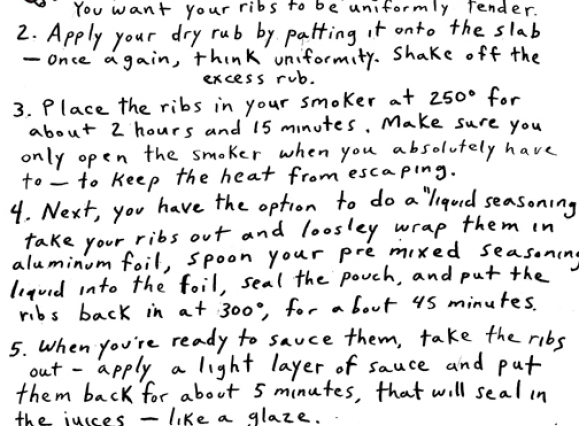 You want your ribs to be uniformly tender.
2. Apply your dry rub by patting it onto the slab
— once again, think uniformity. Shake off the
excess rub.
3. Place the ribs in your smoker at 250° for
about 2 hours and 15 minutes. Make sure you
only open the smoker when you absolutely have
to — to keep the heat from escaping.
4. Next, you have the option to do a "liquid seasoning
take your ribs out and loosley wrap them in
aluminum foil, spoon your pre mixed seasoning
liquid into the foil, seal the pouch, and put the
ribs back in at 300°, for about 45 minutes.
5. When you're ready to sauce them, take the ribs
out - apply a light layer of sauce and put
them back for about 5 minutes, that will seal in
the juices — like a glaze.